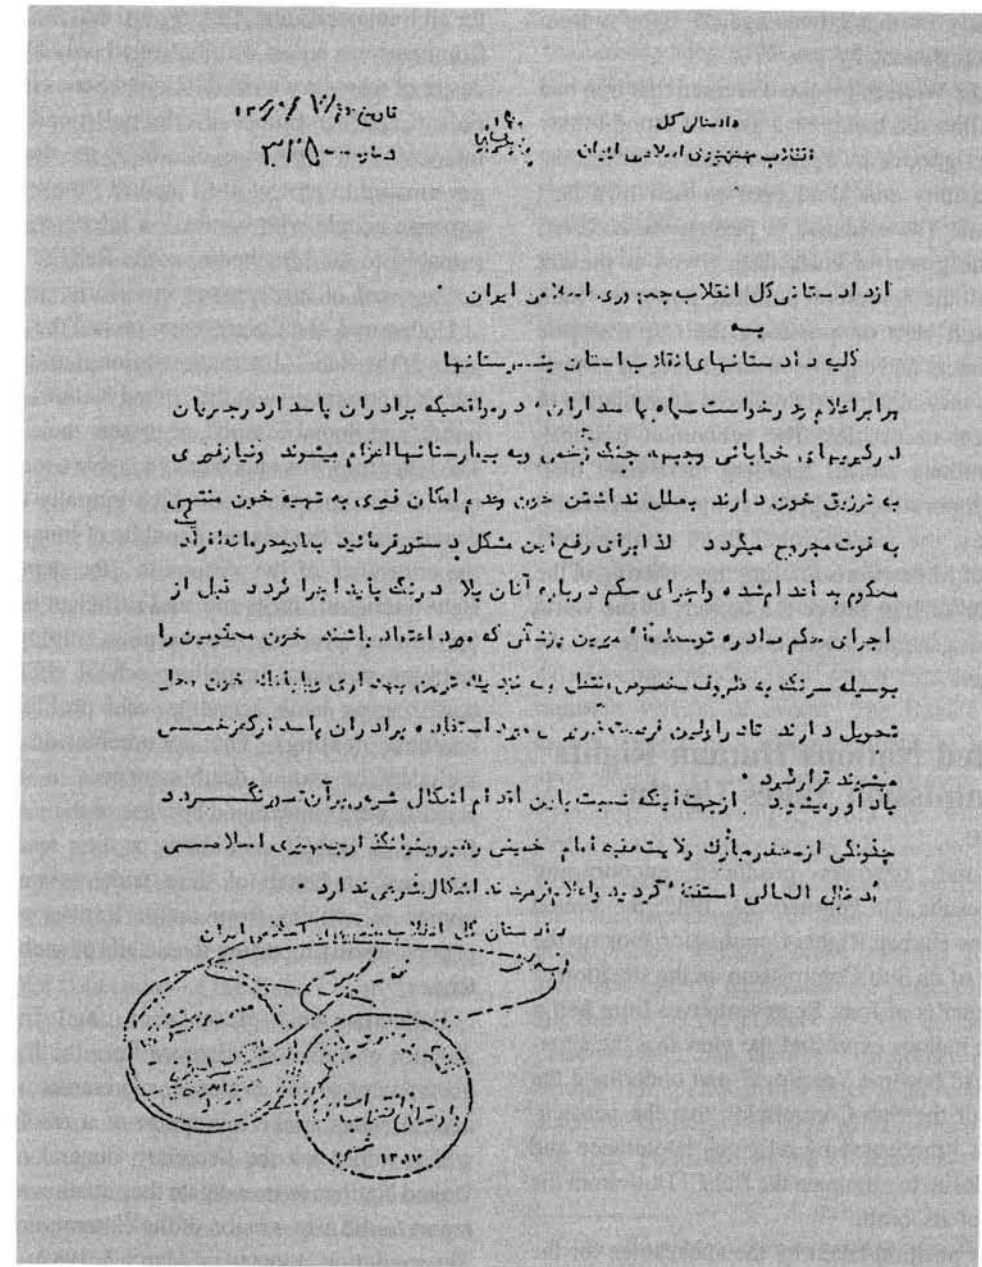 دادستانی کل
انقلاب جمهوری اسلامی ایران
تاریخ
شماره
از دادستانی کل انقلاب جمهوری اسلامی ایران •
به
کلیه دادستانهای انقلاب استان و شهرستانها
برابر اعلام و درخواست سپاه پاسداران، در مواقعیکه برادران پاسدار در جریان
درگیریهای خیابانی و جبهه جنگ زخمی و به بیمارستانها اعزام میشوند و نیاز فوری
به تزریق خون دارند بعلل نداشتن خون و عدم امکان فوری به تهیه خون منتهی
به فوت مجروح میگردد لذا برای رفع این مشکل دستور فرمائید افراد
محکوم به اعدام شده و اجرای حکم درباره آنان بلادرنگ باید اجرا گردد قبل از
اجرای حکم صادره توسط مأمورین پزشکی که مورد اعتماد باشند خون محکومین را
بوسیله سرنگ به ظروف مخصوص منتقل و به نزدیک ترین بهداری و یا بانک خون محل
تحویل دارند تا در اولین فرصت مورد استفاده برادران پاسدار که زخمی
میشوند قرار گیرد •
یادآور میشود از جهت اینکه نسبت باین اقدام اشکال شرعی بر آن تصور نگردد
چگونگی از محضر مبارک ولایت فقیه امام خمینی رهبر و بنیانگذار جمهوری اسلامی
مدظله العالی استفتاء گردید و اعلام فرمودند اشکال شرعی ندارد •
دادستان کل انقلاب جمهوری اسلامی ایران
دادستانی انقلاب اسلامی